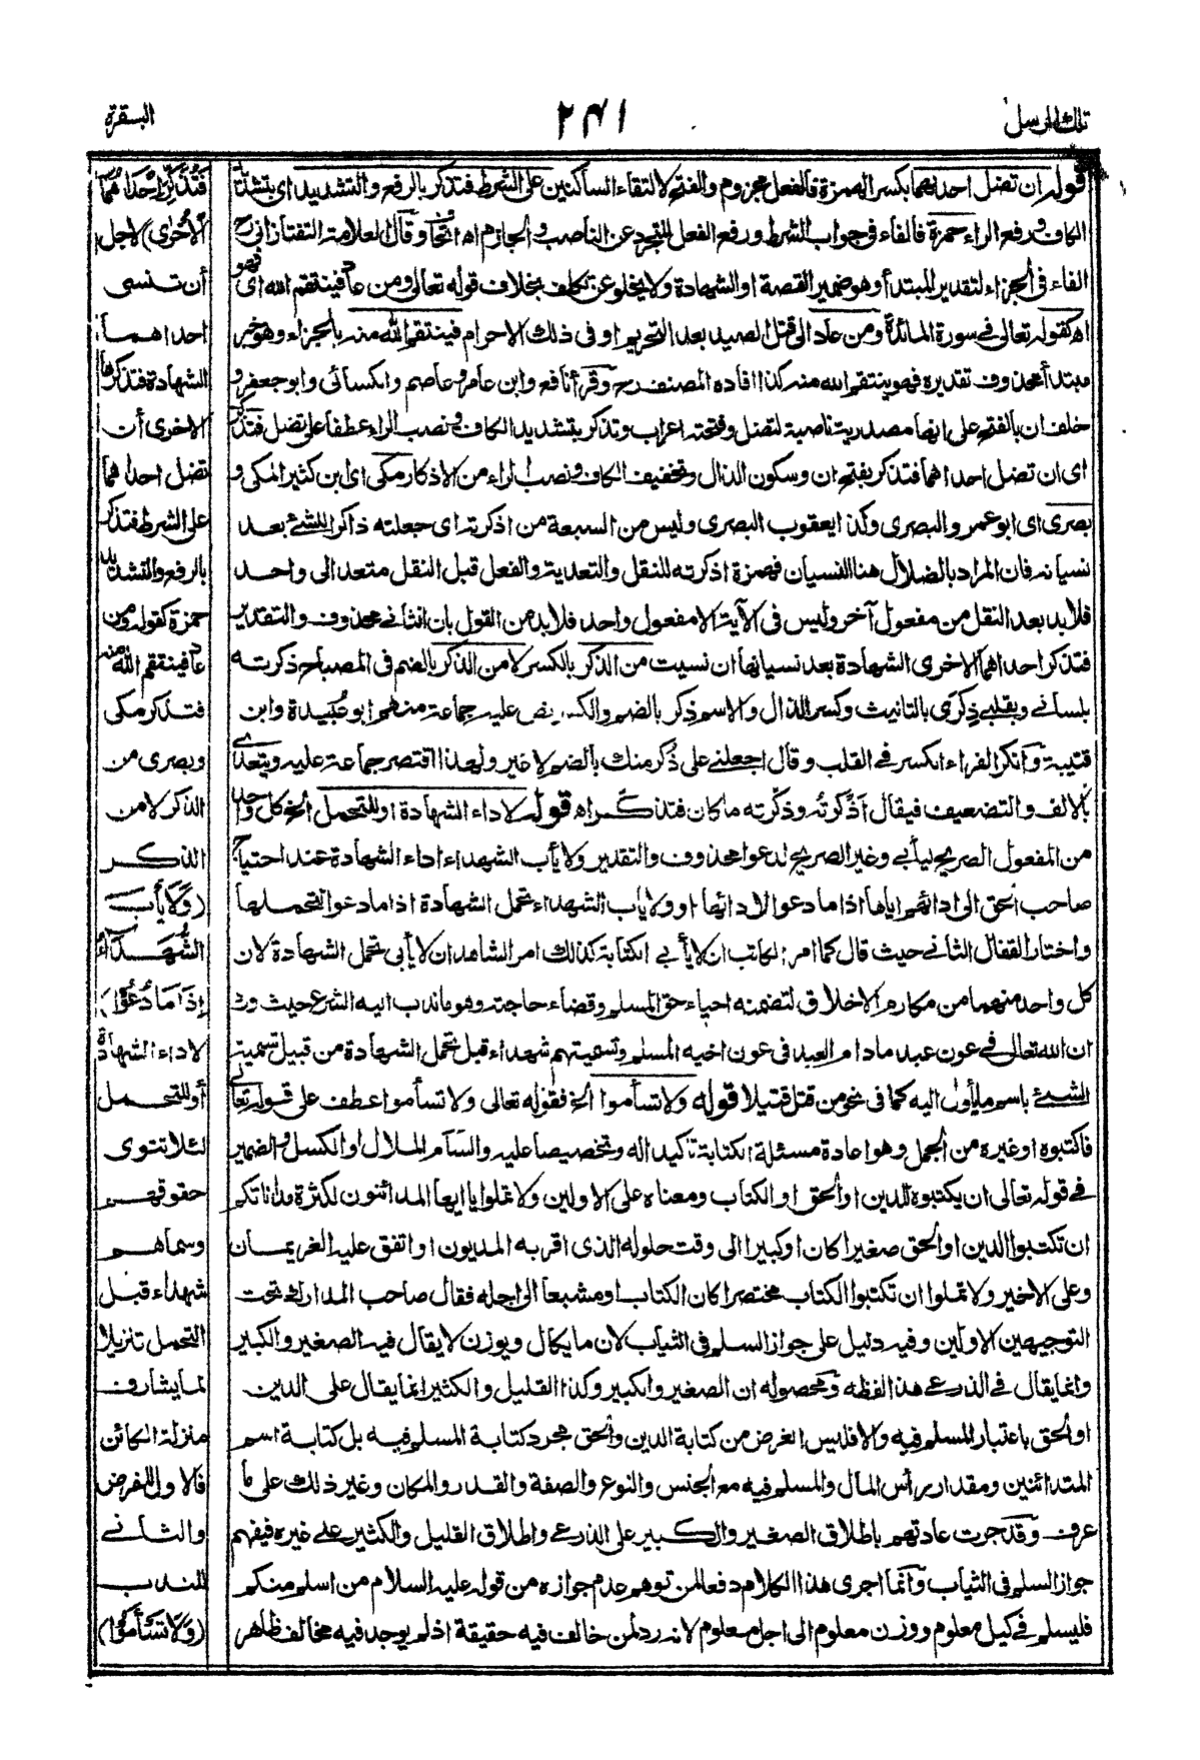 تلك الرسل
٢٤١
البقرة
قوله ان تضل احدىهما بكسر الهمزة فالفعل مجزوم والفتح لالتقاء الساكنين على الشرط فتذكر بالرفع والتشديد اى بتشديد
الكاف ورفع الراء حمزة فالفاء فى جواب الشرط ورفع الفعل للتجرد عن الناصب والجازم اه وقال العلامة التفتازانى رح
الفاء فى الجزاء لتقدير المبتدأ وهو ضمير القصة او الشهادة ولا يخلو عن تكلف بخلاف قوله تعالى ومن عاد فينتقم الله اى فهو
اه كقوله تعالى فى سورة المائدة ومن عاد الى قتل الصيد بعد التحريم او فى ذلك الاحرام فينتقم الله منه بالجزاء وهو خبر
مبتدأ محذوف تقديره فهو ينتقم الله منه كذا افاده المصنف رح وقرأ نافع وابن عامر وعاصم والكسائى وابو جعفر و
خلف ان بالفتح على انها مصدرية ناصبة لتضل وفتحته اعراب وتذكر بتشديد الكاف ونصب الراء عطفا على تضل فتذكر
اى ان تضل احداهما فتذكر بفتح ان وسكون الذال وتخفيف الكاف ونصب الراء من الاذكار مكى اى ابن كثير المكى و
بصرى اى ابو عمرو البصرى وكذا يعقوب البصرى وليس من السبعة من اذكرته اى جعلته ذاكرا للشئ بعد
نسيانه فان المراد بالضلال هنا النسيان فهمزة اذكرته للنقل والتعدية والفعل قبل النقل متعد الى واحد
فلا بد بعد النقل من مفعول آخر وليس فى الآية الا مفعول واحد فلا بد من القول بان الثانى محذوف والتقدير
فتذكر احداهما الاخرى الشهادة بعد نسيانها ان نسيت من الذكر بالكسر لا من الذكر بالضم فى المصباح ذكرته
بلسانى وبقلبى ذكرى بالتانيث وكسر الذال والاسم ذكر بالضم والكسر نص عليه جماعة منهم ابو عبيدة وابن
قتيبة وانكر الفراء الكسر فى القلب وقال اجعلنى على ذكر منك بالضم لا غير ولهذا اقتصر جماعة عليه ويتعدى
بالالف والتضعيف فيقال اذكرته وذكرته ما كان فتذكر اه قوله لاداء الشهادة او للتحمل الخ كل واحد
من المفعول الصريح ليأبى وغير الصريح لدعوا محذوف والتقدير ولا يأب الشهداء اداء الشهادة عند احتياج
صاحب الحق الى ادائهم اياها اذا ما دعوا لادائها او ولا يأب الشهداء تحمل الشهادة اذا ما دعوا لتحملها
واختار القفال الثانى حيث قال كما امر الكاتب ان لا يأبى الكتابة كذلك امر الشاهد ان لا يأبى تحمل الشهادة لان
كل واحد منهما من مكارم الاخلاق لتضمنه احياء حق المسلم وقضاء حاجته وهو ما ندب اليه الشرع حيث ورد
ان الله تعالى فى عون عبد ما دام العبد فى عون اخيه المسلم وتسميتهم شهداء قبل تحمل الشهادة من قبيل تسمية
الشئ باسم ما يأول اليه كما فى نحو من قتل قتيلا قوله ولا تسأموا الخ فقوله تعالى ولا تسأموا عطف على قوله تعالى
فاكتبوه او غيره من الجمل وهو اعادة مسئلة الكتابة تاكيدا له وتخصيصا عليه والسآم الملال او الكسل والضمير
فى قوله تعالى ان يكتبوه للدين او الحق او الكتاب ومعناه على الاولين ولا تملوا يا ايها المدائنون لكثرة مداناتكم
ان تكتبوا الدين او الحق صغيرا كان او كبيرا الى وقت حلوله الذى اقر به المديون او اتفق عليه الغريمان
وعلى الاخير ولا تملوا ان تكتبوا الكتاب مختصرا كان الكتاب او مشبعا الى اجله فقال صاحب المدارك تحت
التوجيهين الاولين وفيه دليل على جواز السلم فى الثياب لان ما يكال ويوزن لا يقال فيه الصغير والكبير
وانما يقال فى الذرعى هذا لفظه ومحصوله ان الصغير والكبير وكذا القليل والكثير انما يقال على الدين
او الحق باعتبار المسلم فيه والا فليس الغرض من كتابة الدين والحق مجرد كتابة المسلم فيه بل كتابة اسم
المتدائنين ومقدار رأس المال والمسلم فيه مع الجنس والنوع والصفة والقدر والمكان وغير ذلك على ما
عرف وقد جرت عادتهم باطلاق الصغير والكبير على الذرعى واطلاق القليل والكثير على غيره فيفهم
جواز السلم فى الثياب وانما اجرى هذا الكلام دفعا لمن توهم عدم جوازه من قوله عليه السلام من اسلم منكم
فليسلم فى كيل معلوم ووزن معلوم الى اجل معلوم لانه رد لمن خالف فيه حقيقة اذ لم يوجد فيه مخالف ظاهر
فَتُذَكِّرَ إِحْدَاهُمَا
الْأُخْرَى) لاجل
أن تنسى
احداهما
الشهادة فتذكرها
الاخرى أن
تضل احداهما
على الشرط فتذكر
بالرفع والتشديد
حمزة كقوله ومن
عاد فينتقم الله منه
فتذكر مكى
وبصرى من
الذكر لا من
الذكر
(وَلَا يَأْبَ
الشُّهَدَآءُ
إِذَا مَا دُعُوا)
لاداء الشهادة
أو للتحمل
لئلا تتوى
حقوقهم
وسماهم
شهداء قبل
التحمل تنزيلا
لما يشارف
منزلة الكائن
فالاول للفرض
والثانى
للندب
(وَلَا تَسْأَمُوا)